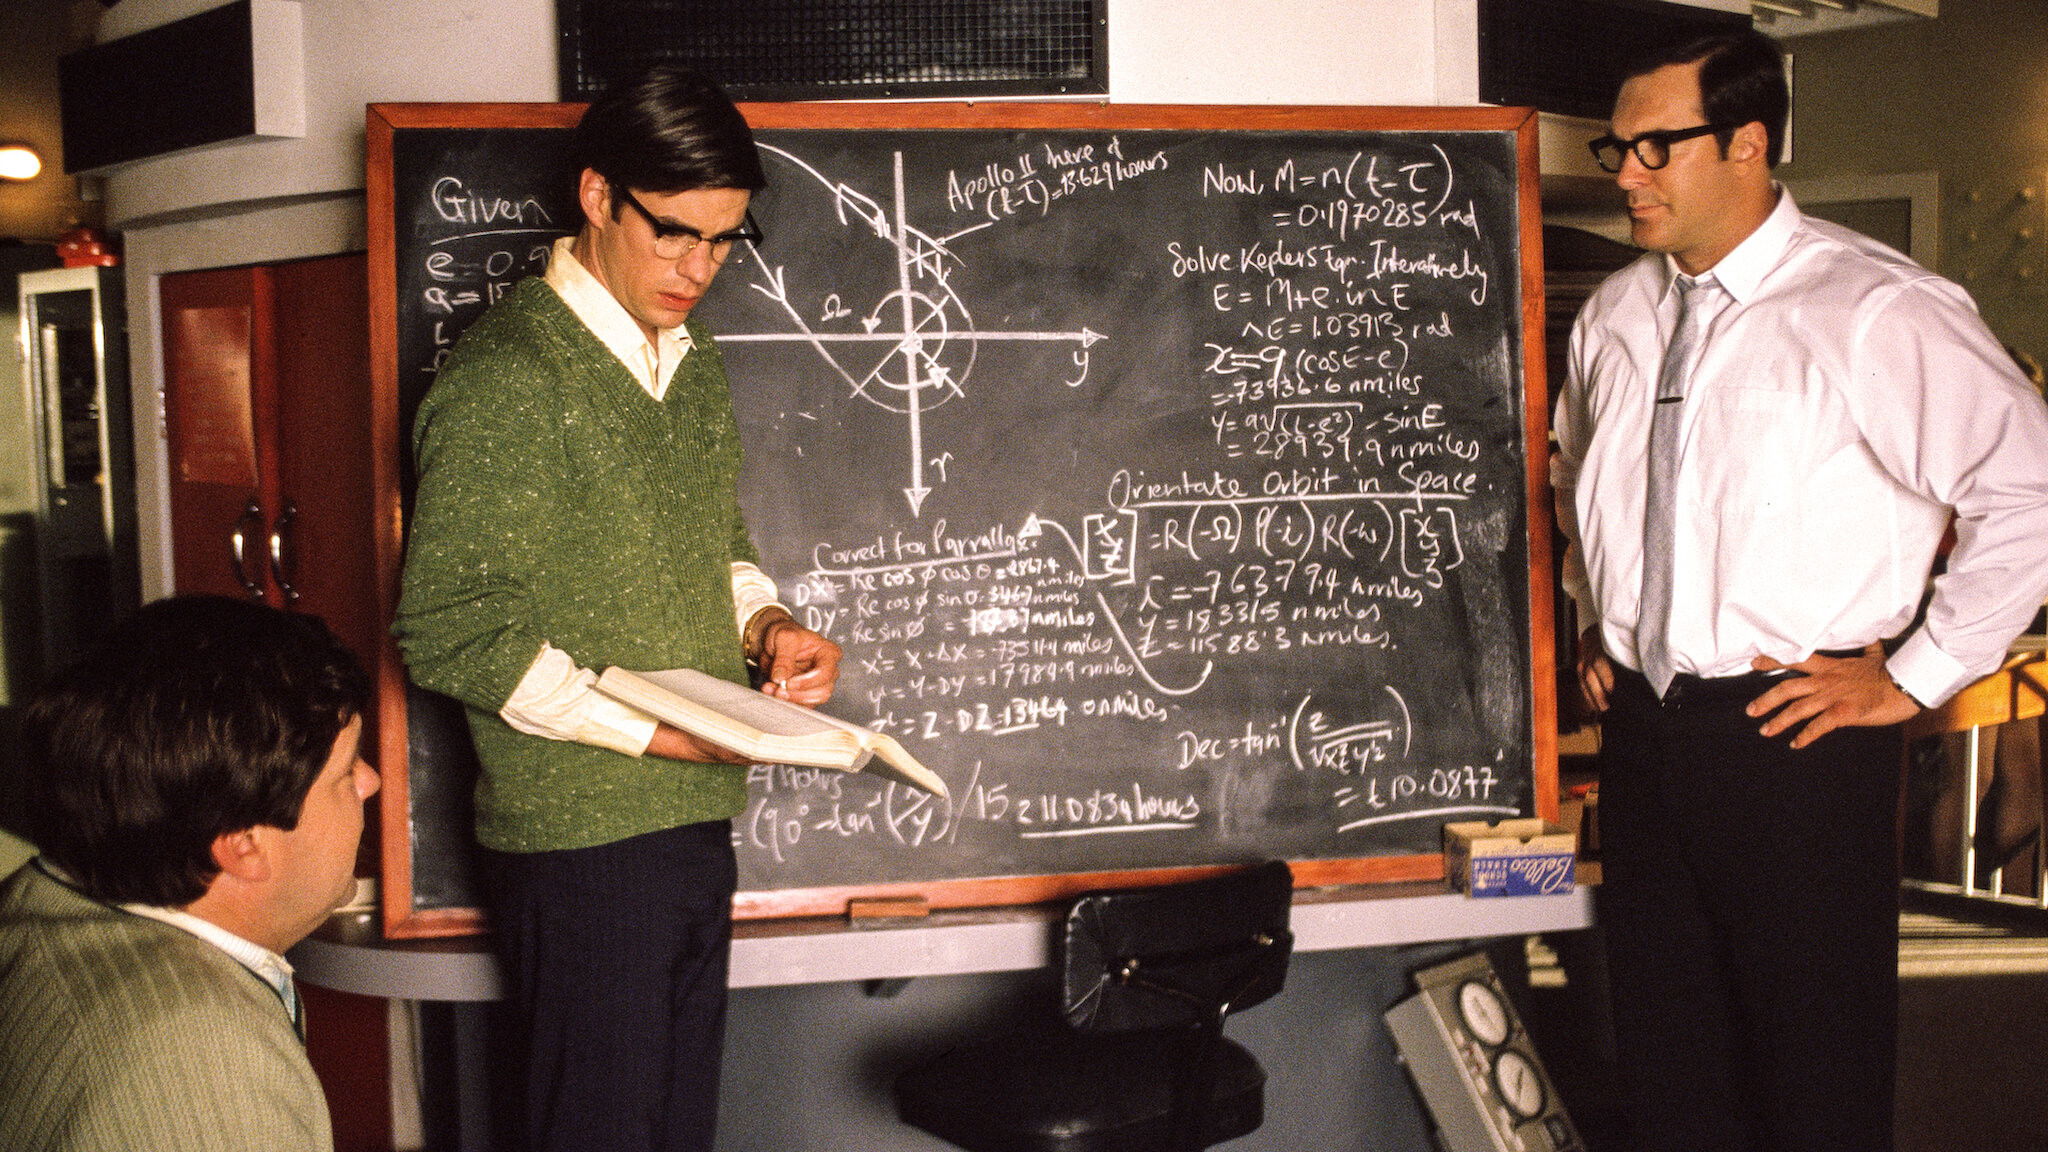 Given
e = 0.9
a = 15
Apollo 11 here @
(t-τ) = 13.629 hours
Ω
y
r
Now, M = n(t-τ)
= 0.1970285 rad
Solve Keplers Eqn. Interatively
E = M+e.inE
∧E = 1.03913 rad
x = a (cosE-e)
= -73936.6 nmiles
y = a√(1-e²) - sinE
= 28939.9 nmiles
Orientate Orbit in Space.
[X Y Z] = R(-Ω) P(-i) R(-ω) [x y z]
= -76379.4 nmiles
y = 19331.5 nmiles
Z = 11588.3 nmiles.
Correct for Parrallax.
DX = Re cos φ cos θ = 2867.4 nmiles
Dy = Rc cos φ sin θ. 346.7 nmiles
= Re sin φ = nmiles
X' = X - ΔX = -73511.4 nmiles
y' = Y - DY = 17989.9 nmiles
z' = Z - DZ = 13464 onmiles.
Dec = tan⁻¹ (z / √x'² y'²)
= ± 10.0877'
hours
= (90° - tan⁻¹ (x/y) / 15 = 11.0834 hours
Bellco
CHALK